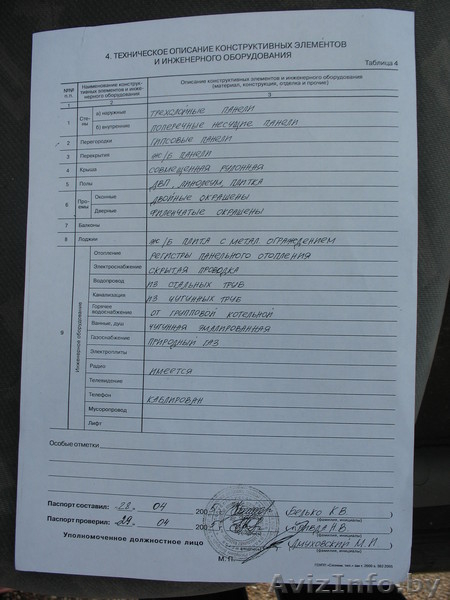 4. ТЕХНИЧЕСКОЕ ОПИСАНИЕ КОНСТРУКТИВНЫХ ЭЛЕМЕНТОВ
И ИНЖЕНЕРНОГО ОБОРУДОВАНИЯ
Таблица 4
№№ п.п. Наименование конструктивных элементов и инженерного оборудования Описание конструктивных элементов и инженерного оборудования (материал, конструкция, отделка и прочие)
1 2 3
1 Стены а) наружные ТРЕХСЛОЙНЫЕ ПАНЕЛИ
б) внутренние ПОПЕРЕЧНЫЕ НЕСУЩИЕ ПАНЕЛИ
2 Перегородки ГИПСОВЫЕ ПАНЕЛИ
3 Перекрытия Ж/Б ПАНЕЛИ
4 Крыша СОВМЕЩЕННАЯ РУЛОННАЯ
5 Полы ДВП, ЛИНОЛЕУМ, ПЛИТКА
6 Проемы Оконные ДВОЙНЫЕ ОКРАШЕНЫ
Дверные ФИЛЕНЧАТЫЕ ОКРАШЕНЫ
7 Балконы
8 Лоджии Ж/Б ПЛИТА С МЕТАЛ ОГРАЖДЕНИЕМ
9 Инженерное оборудование Отопление РЕГИСТРЫ ПАНЕЛЬНОГО ОТОПЛЕНИЯ
Электроснабжение СКРЫТАЯ ПРОВОДКА
Водопровод ИЗ СТАЛЬНЫХ ТРУБ
Канализация ИЗ ЧУГУННЫХ ТРУБ
Горячее водоснабжение ОТ ГРУППОВОЙ КОТЕЛЬНОЙ
Ванные, душ ЧУГУННАЯ ЭМАЛИРОВАННАЯ
Газоснабжение ПРИРОДНЫЙ ГАЗ
Электроплиты
Радио ИМЕЕТСЯ
Телевидение
Телефон КАБЛИРОВАН
Мусоропровод
Лифт
Особые отметки
Паспорт составил: 28 04 2005 Белько К.В.
(фамилия, инициалы)
Паспорт проверил: 29 04 200
(фамилия, инициалы)
Уполномоченное должностное лицо
(фамилия, инициалы)
М.П.
AvizInfo.by